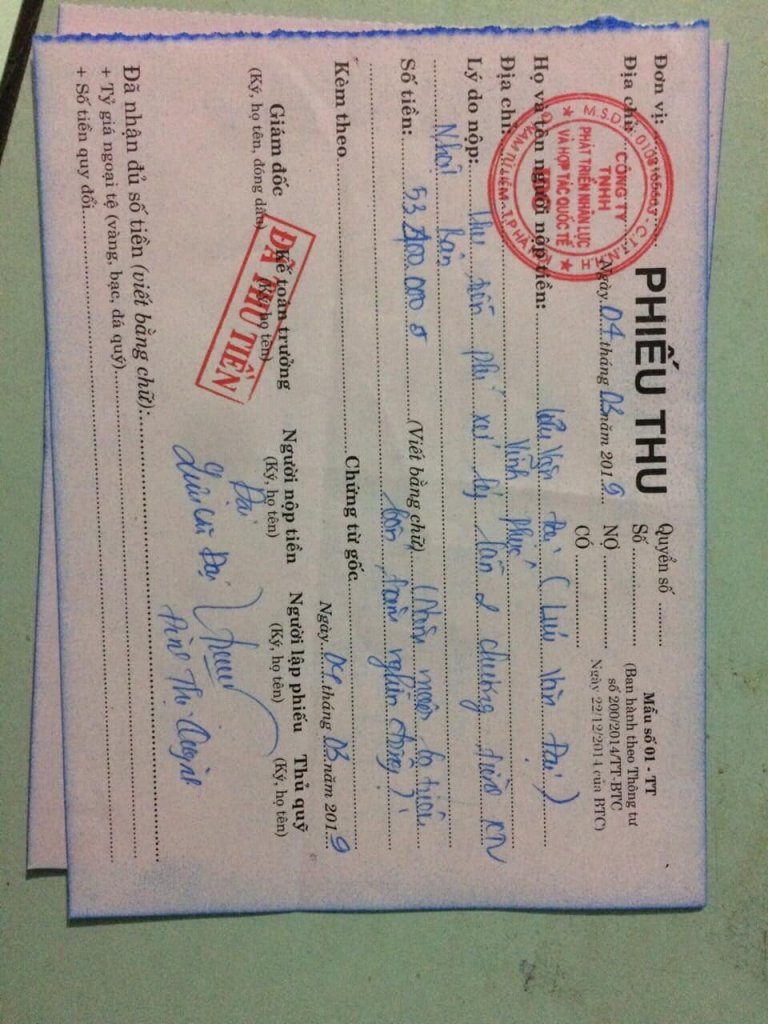 Đơn vị:
Địa chỉ:
M.S.D.N: 0108165663 - C.T.T.N.H.H
CÔNG TY
TNHH
PHÁT TRIỂN NHÂN LỰC
VÀ HỢP TÁC QUỐC TẾ
TỪ LIÊM - T.P HÀ NỘI
PHIẾU THU
Ngày 04 tháng 03 năm 2019
Quyển số
Số
NỢ
CÓ
Mẫu số 01 - TT
(Ban hành theo Thông tư
số 200/2014/TT-BTC
Ngày 22/12/2014 của BTC)
Họ và tên người nộp tiền: Lưu Văn Đại (Lưu Văn Đại)
Địa chỉ: Vĩnh Phúc
Lý do nộp: thu tiền phí xử lý lần 2 chương trình
Nhật Bản
Số tiền: 53.400.000 đ (Viết bằng chữ) (Năm mươi ba triệu
bốn trăm nghìn đồng)
Kèm theo Chứng từ gốc
Ngày 04 tháng 03 năm 2019
Giám đốc
(Ký, họ tên, đóng dấu)
Kế toán trưởng
(Ký, họ tên)
Người nộp tiền
(Ký, họ tên)
Người lập phiếu
(Ký, họ tên)
Thủ quỹ
(Ký, họ tên)
ĐÃ THU TIỀN
Đại
Lưu Văn Đại
Đinh Thị
Đã nhận đủ số tiền (viết bằng chữ):
+ Tỷ giá ngoại tệ (vàng, bạc, đá quý)
+ Số tiền quy đổi